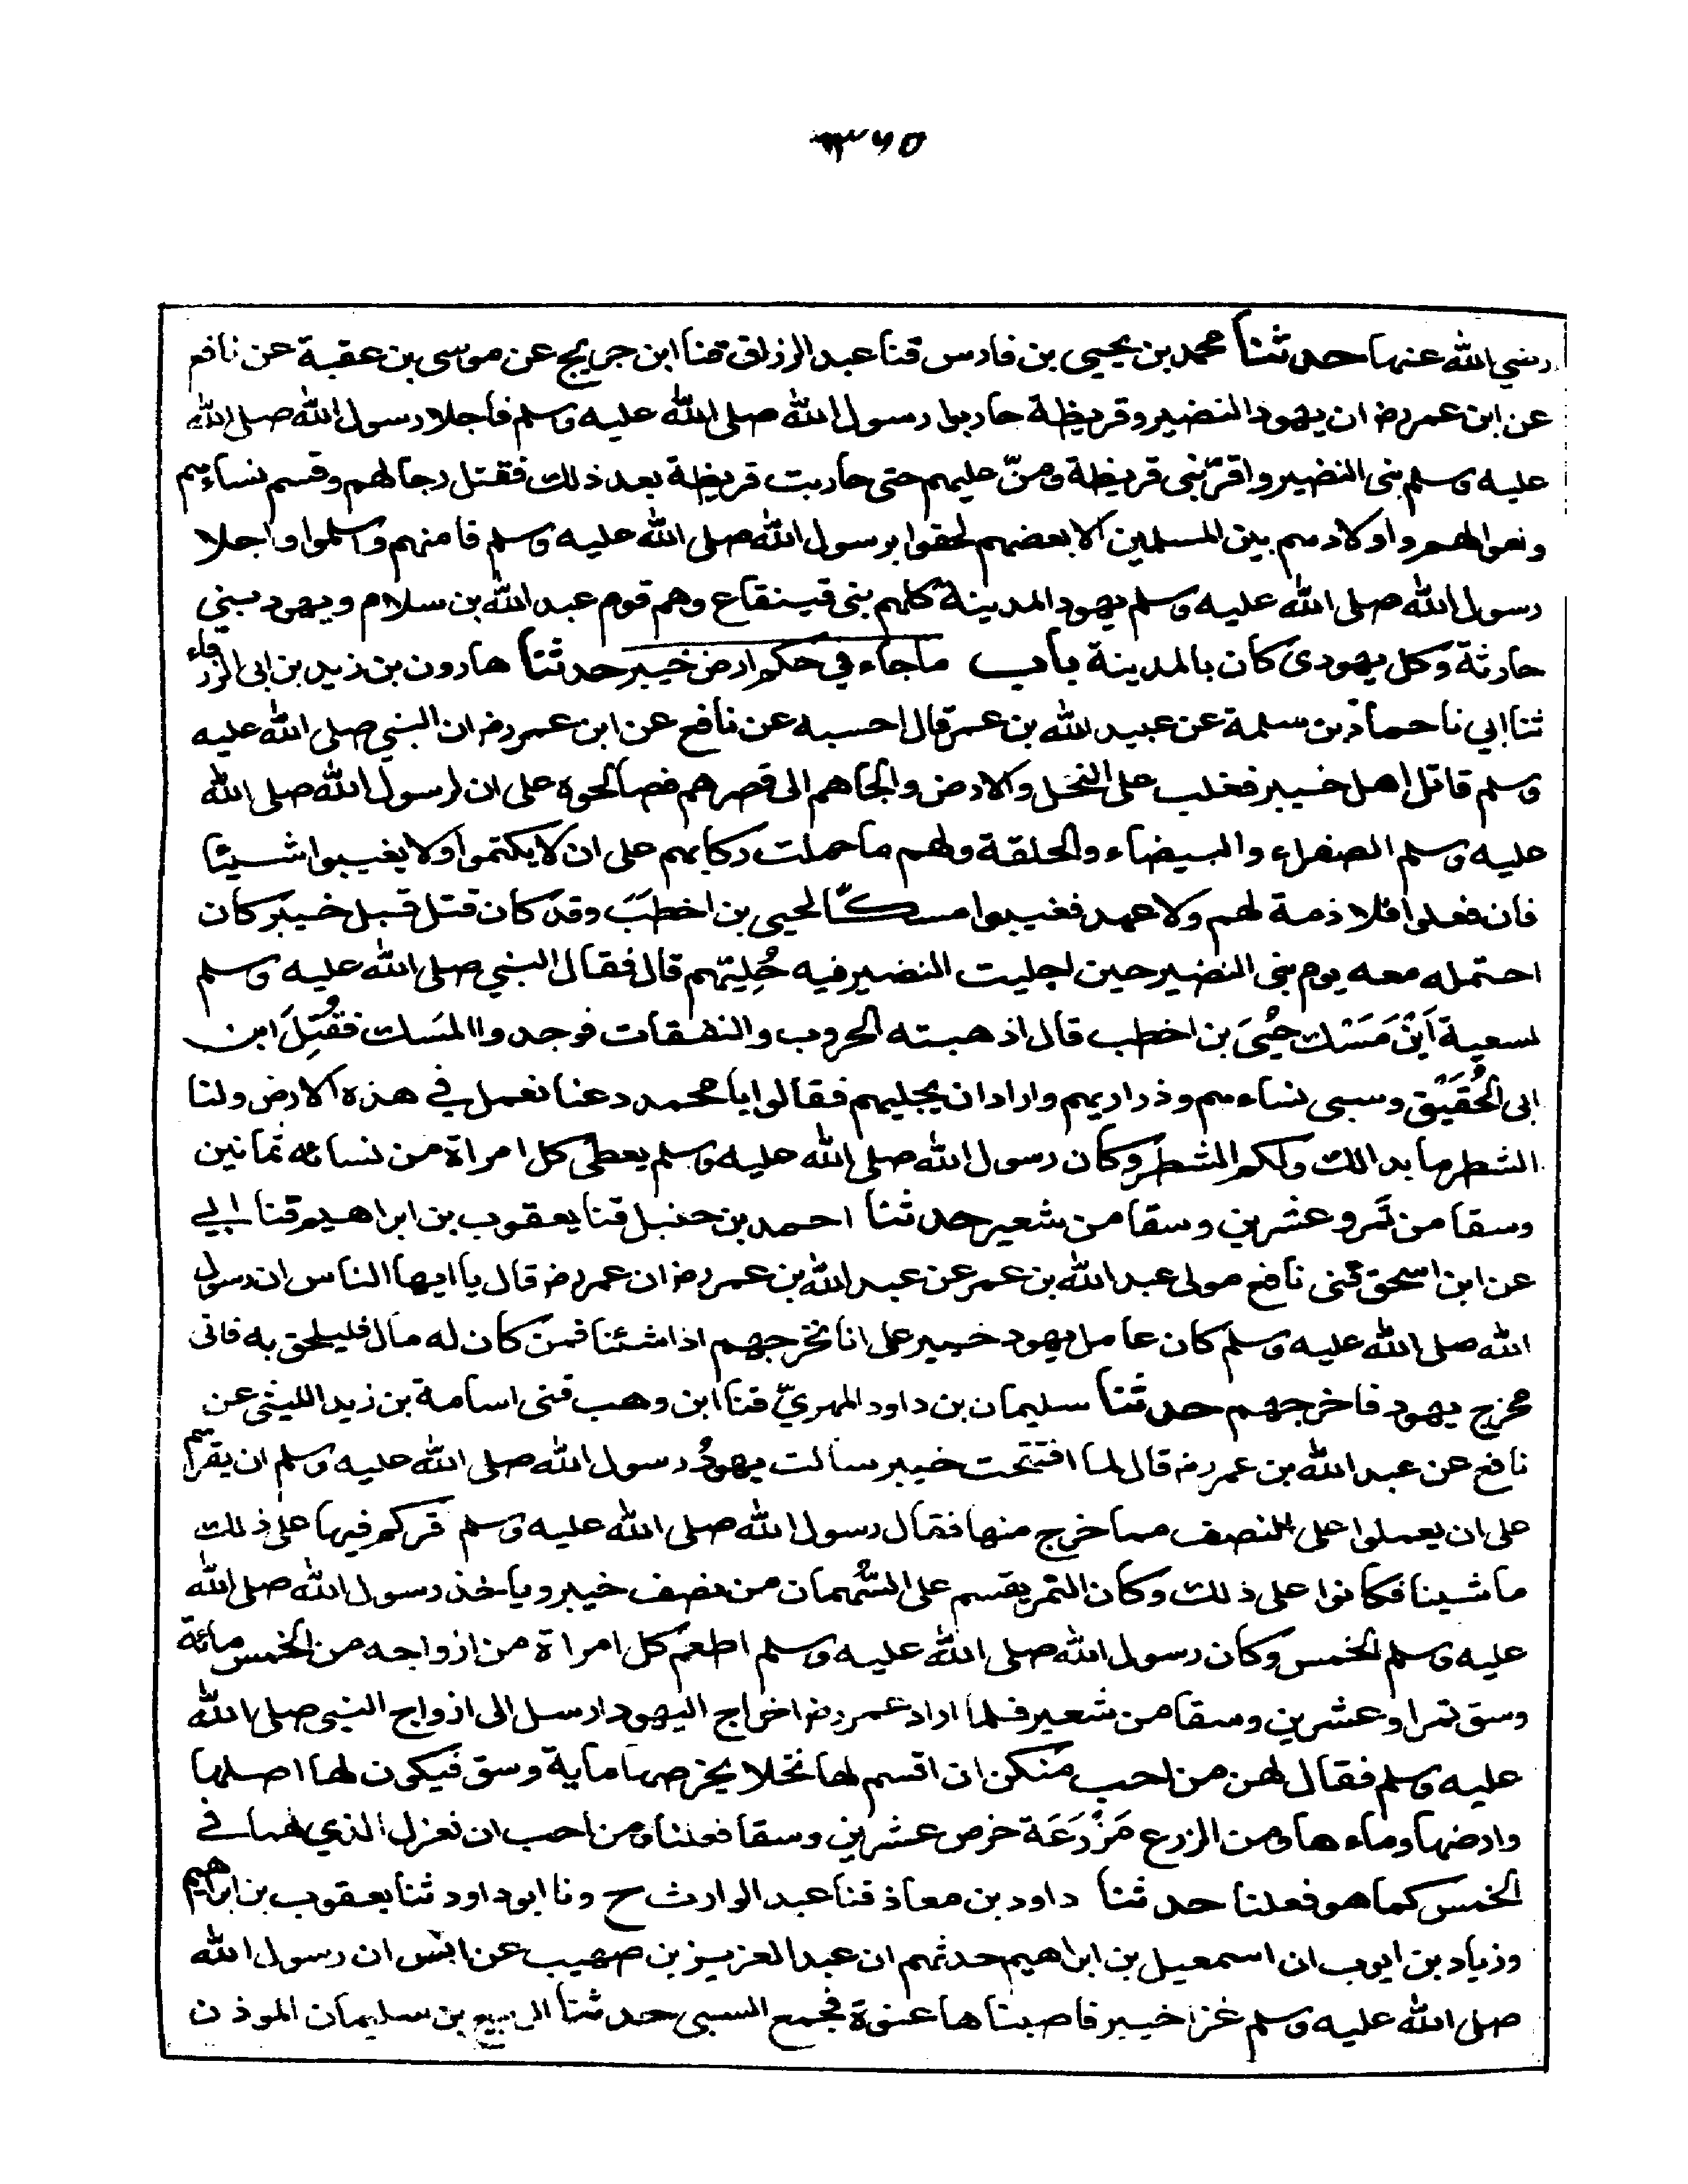 ٣٦٥
رضي الله عنها حدثنا محمد بن يحيى بن فارس قثنا عبد الرزاق قثنا ابن جريج عن موسى بن عقبة عن نافع
عن ابن عمر رض ان يهود النضير وقريظة حاربوا رسول الله صلى الله عليه وسلم فاجلا رسول الله صلى الله
عليه وسلم بنى النضير واقرّ بنى قريظة ومنّ عليهم حتى حاربت قريظة بعد ذلك فقتل رجالهم وقسم نساءهم
وأموالهم واولادهم بين المسلمين الا بعضهم لحقوا برسول الله صلى الله عليه وسلم فامنهم واسلموا واجلا
رسول الله صلى الله عليه وسلم يهود المدينة كلهم بنى قينقاع وهم قوم عبد الله بن سلام ويهود بني
حارثة وكل يهودى كان بالمدينة باب ماجاء في حكم ارض خيبر حدثنا هارون بن زيد بن ابى الزرقاء
ثنا ابي نا حماد بن سلمة عن عبيد الله بن عمر قال احسبه عن نافع عن ابن عمر رض ان النبي صلى الله عليه
وسلم قاتل اهل خيبر فغلب على النخل والارض والجاهم الى قصرهم فصالحوه على ان لرسول الله صلى الله
عليه وسلم الصفراء والبيضاء والحلقة ولهم ما حملت ركابهم على ان لا يكتموا ولا يغيبوا شيئا
فان فعلوا فلا ذمة لهم ولا عهد فغيبوا مسكًا لحيى بن اخطب وقد كان قتل قبل خيبر كان
احتمله معه يوم بنى النضير حين اجليت النضير فيه حُلِيّهم قال فقال النبي صلى الله عليه وسلم
لسعية اَيْنَ مَسْك حُيَىّ بن اخطب قال اذهبته الحروب والنفقات فوجدوا المَسك فقُتِلَ ابن
ابى الحُقَيْق وسبى نساءهم وذراريهم واراد ان يجليهم فقالوا يا محمد دعنا نعمل في هذه الارض ولنا
الشطر ما بدا لك ولكم الشطر وكان رسول الله صلى الله عليه وسلم يعطى كل امراة من نسائه ثمانين
وسقا من تمر وعشرين وسقا من شعير حدثنا احمد بن حنبل قثنا يعقوب بن ابراهيم قثنا ابي
عن ابن اسحق قثنى نافع مولى عبد الله بن عمر عن عبد الله بن عمر رض ان عمر رض قال يا ايها الناس ان رسول
الله صلى الله عليه وسلم كان عامل يهود خيبر على انا نخرجهم اذا شئنا فمن كان له مال فليلحق به فانى
مخرج يهود فاخرجهم حدثنا سليمان بن داود المهريّ قثنا ابن وهب قثنى اسامة بن زيد الليثى عن
نافع عن عبد الله بن عمر رض قال لما افتتحت خيبر سالت يهودُ رسول الله صلى الله عليه وسلم ان يقرهم
على ان يعملوا على النصف مما خرج منها فقال رسول الله صلى الله عليه وسلم قركم فيها على ذلك
ما شينا فكانوا على ذلك وكان التمر يقسم على السُّهمان من نصف خيبر وياخذ رسول الله صلى الله
عليه وسلم الخمس وكان رسول الله صلى الله عليه وسلم اطعم كل امراة من ازواجه من الخمس مائة
وسق تمرا وعشرين وسقا من شعير فلما اراد عمر رض اخراج اليهود ارسل الى ازواج النبي صلى الله
عليه وسلم فقال لهن من احب منكن ان اقسم لها نخلا بخرصها ماية وسق فيكون لها اصلها
وارضها وماءها ومن الزرع مَزْرَعَة خرص عشرين وسقا فعلنا ومن احب ان نعزل الذي لها في
الخمس كما هو فعلنا حدثنا داود بن معاذ قثنا عبد الوارث ح ونا ابو داود ثنا يعقوب بن ابراهيم
وزياد بن ايوب ان اسمعيل بن ابراهيم حدثهم ان عبد العزيز بن صهيب عن انس ان رسول الله
صلى الله عليه وسلم غزا خيبر فاصبناها عنوة فجمع السبى حدثنا الربيع بن سليمان الموذن